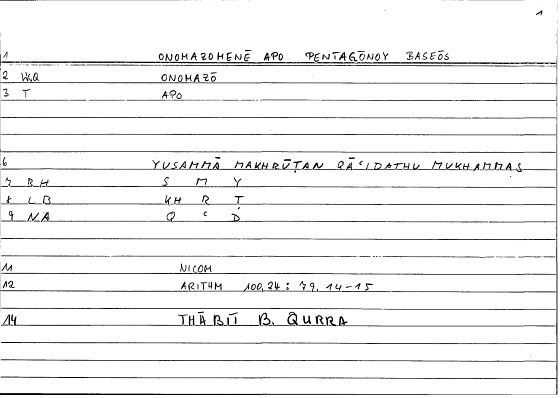 1
1 ONOMAZOMENĒ APO PENTAGŌNOY BASEŌS
2 WQ ONOMAZŌ
3 T APO
6 YUSAMMĀ MAKHRŪṬAN QĀʿIDATHU MUKHAMMAS
7 BH S M Y
8 LB KH R Ṭ
9 NA Q ʿ D
11 NICOM
12 ARITHM 100,24 : 79, 14-15
14 THĀBIT B. QURRA